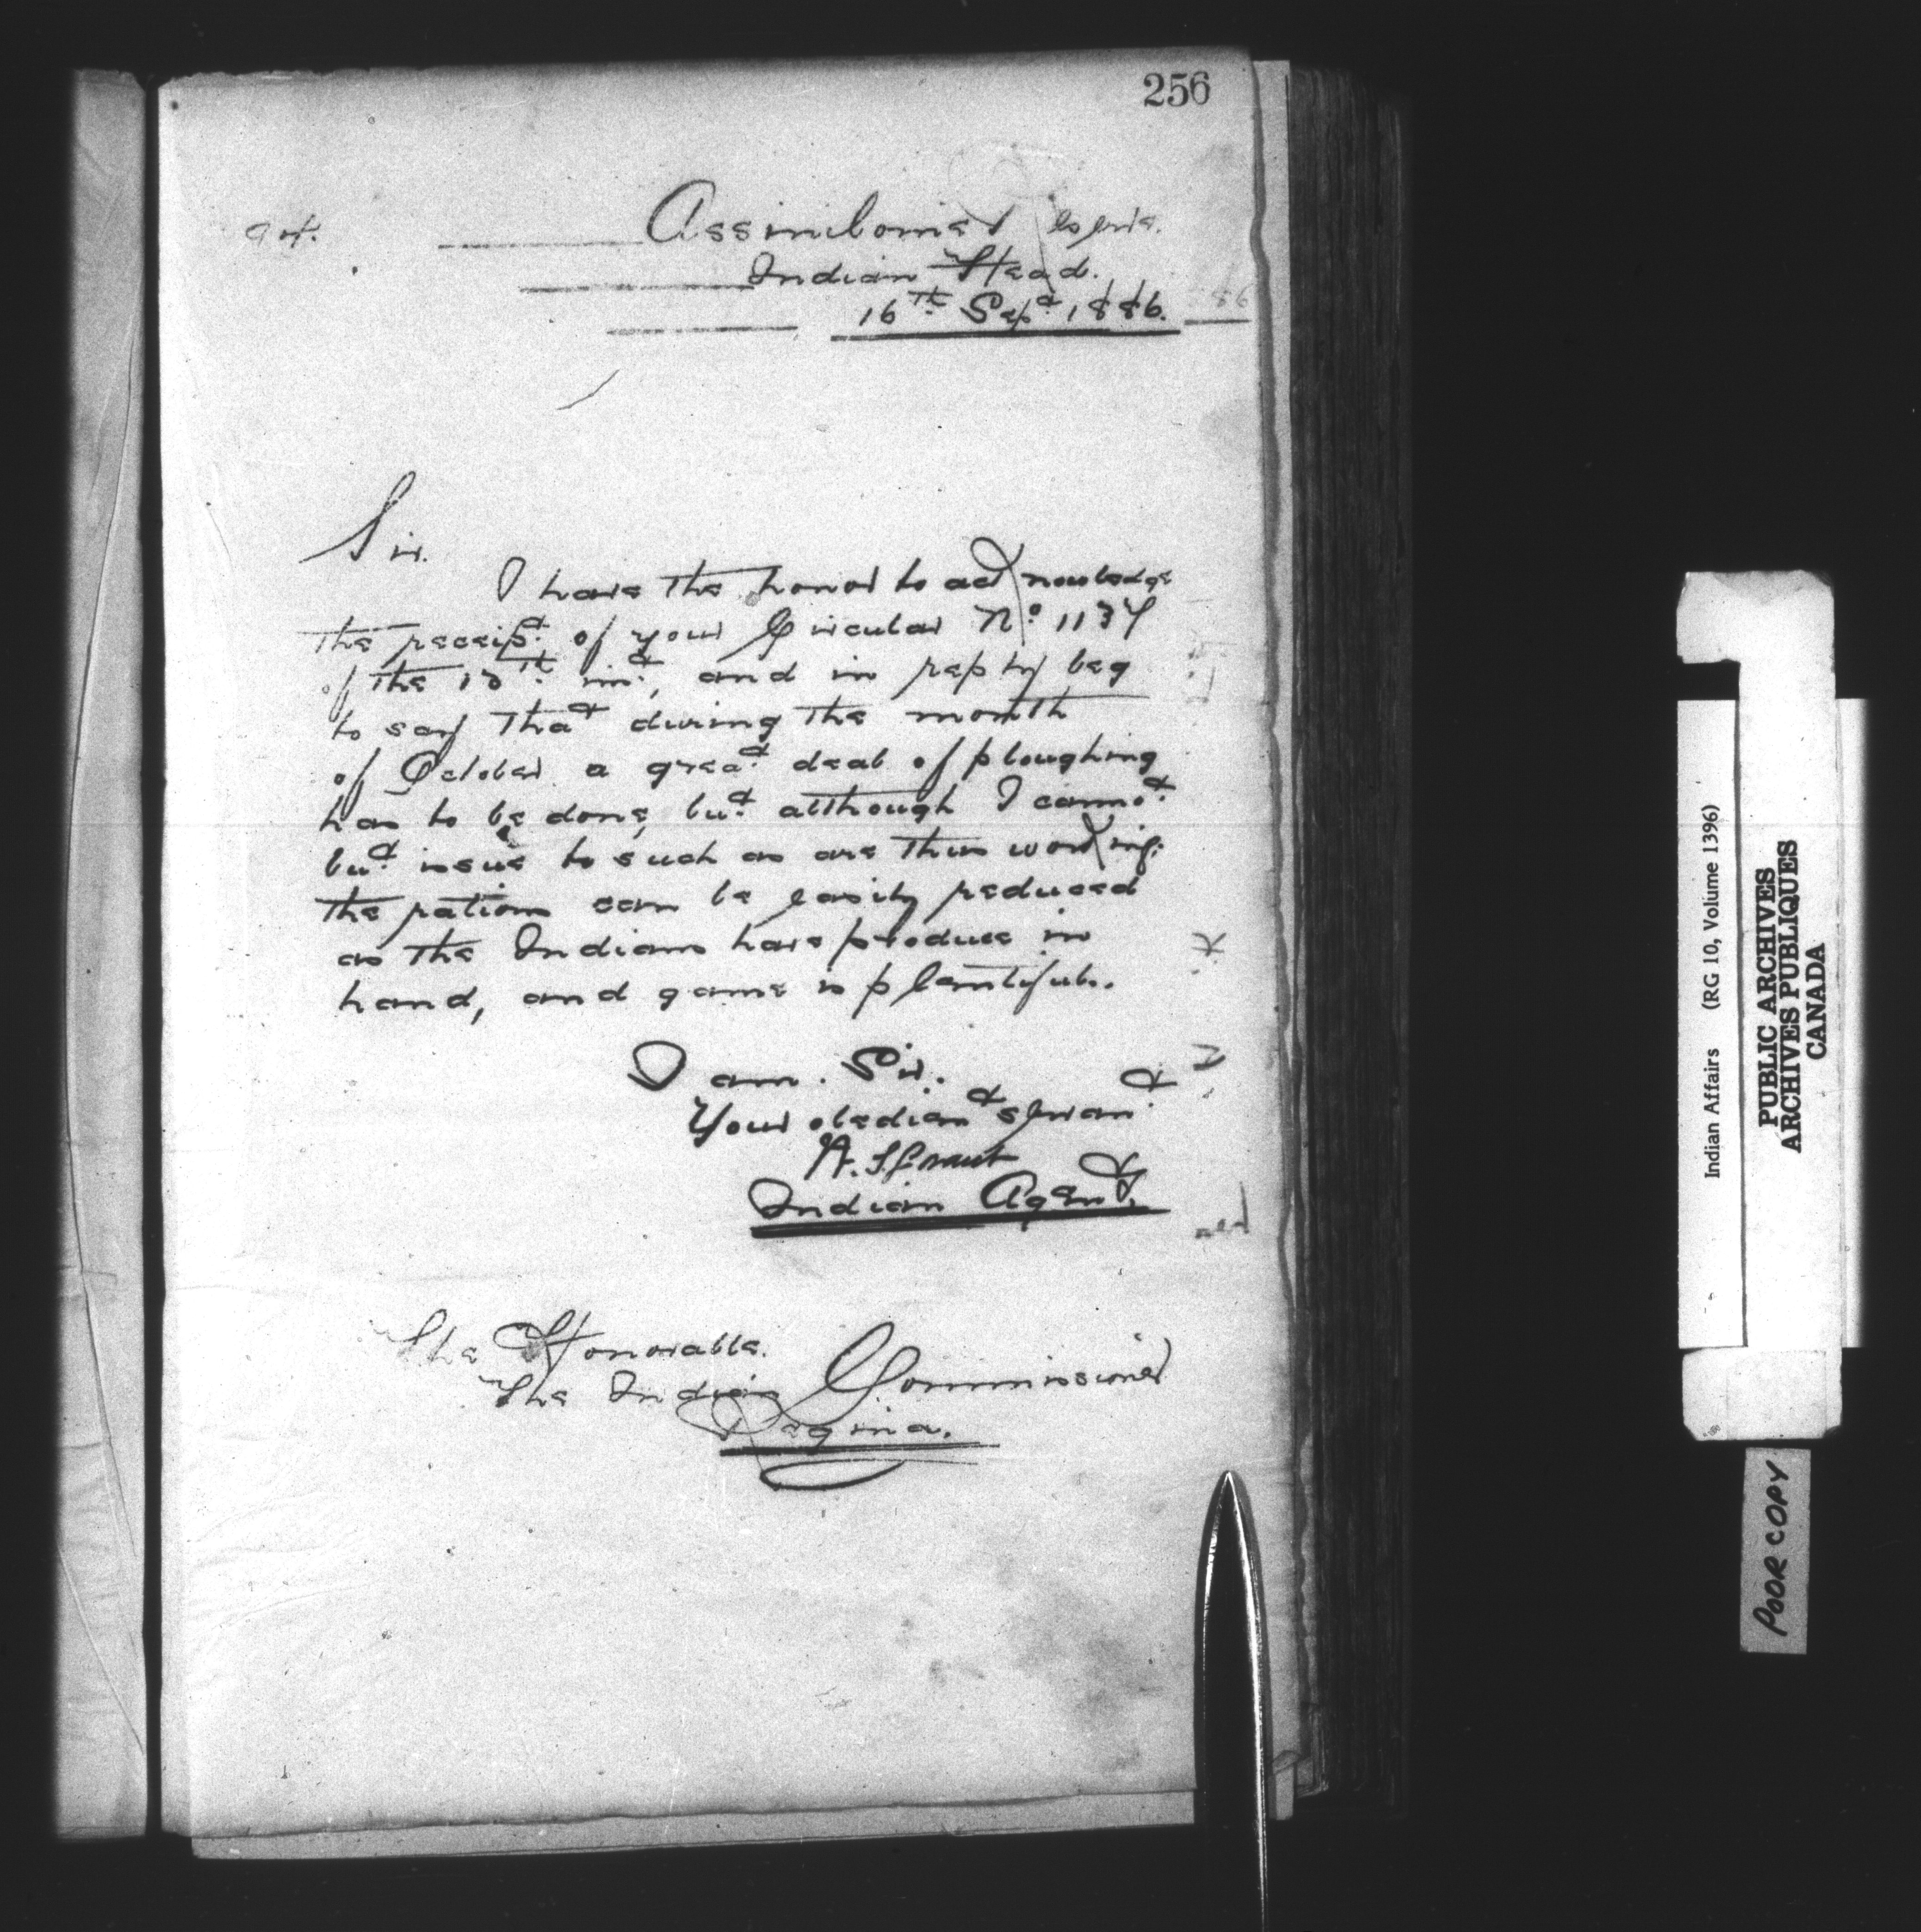 256
Assiniboine Reserve.
Indian Head.
16th Sept 1886.
Sir.
I have the honor to acknowledge
the receipt of your Circular No 1137
of the 13th inst, and in reply beg
to say that during the month
of October a great deal of ploughing
has to be done, but although I cannot
but issue to such as are thus working.
the rations can be easily reduced
as the Indians have produce in
hand, and game is plentiful.
I am. Sir.
Your obedient servant
W. S. Grant
Indian Agent.
The Honorable.
The Indian Commissioner
Regina.
Indian Affairs (RG 10, Volume 1396)
PUBLIC ARCHIVES
ARCHIVES PUBLIQUES
CANADA
POOR COPY